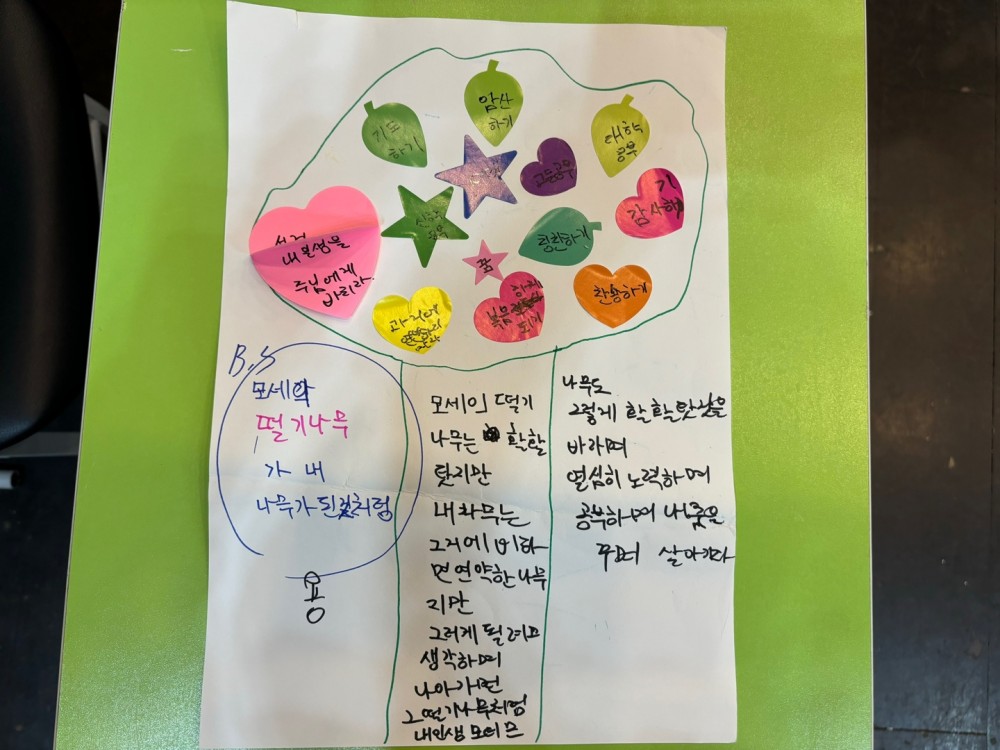 암산
하기
기도
하기
대학
공부
고등공부
기
감사해
신앙
공부
평환하게
내 인생을
주님에게
바치라.
꿈
찬양하게
과거에
복음
되기
B.S
모세의
떨기나무
가 내
나무가 된것처럼
용
모세의 떨기
나무는 활활
탔지만
내 나무는
그거에 비하
면 연약한 나무
지만
그러게 될려고
생각하며
나아가면
그 떨기나무처럼
내인생 모티브
나무도
그렇게 활활탄 삶을
바라며
열심히 노력하며
공부하며
꾸며 살아가다